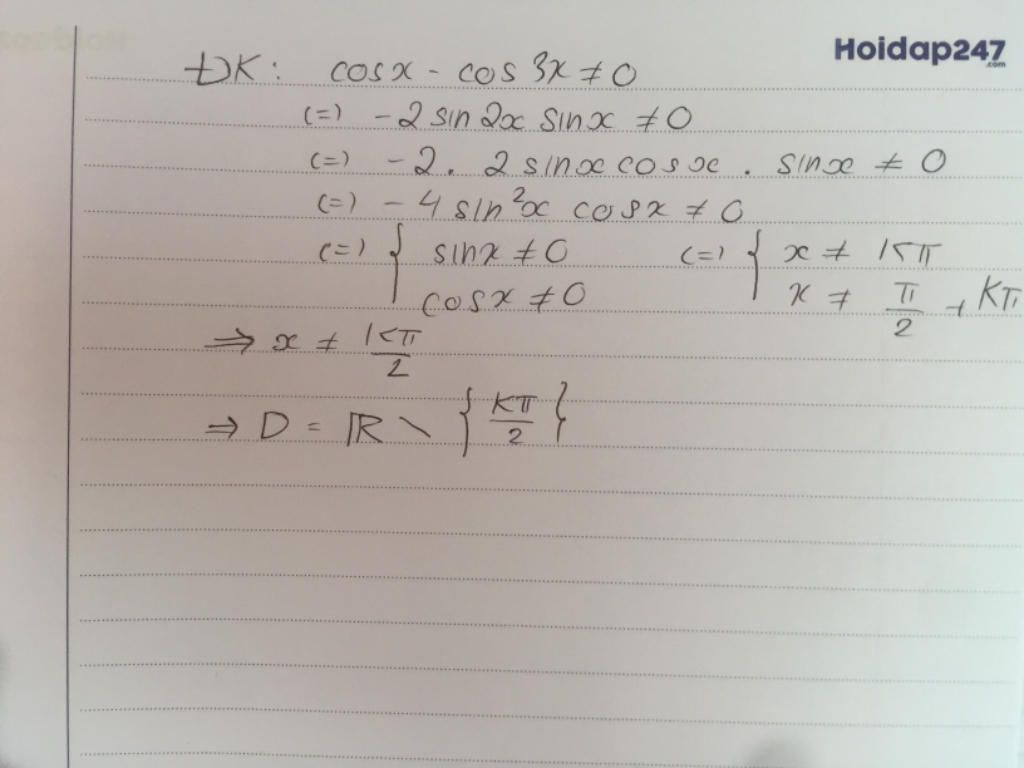 Hoidap247
.com
ĐK: cosx - cos 3x ≠ 0
(=) -2 sin 2x sinx ≠ 0
(=) -2. 2 sinx cosx . sinx ≠ 0
(=) -4 sin²x cosx ≠ 0
(=) { sinx ≠ 0 (=) { x ≠ Kπ
cosx ≠ 0 x ≠ π/2 + Kπ
=> x ≠ Kπ/2
=> D = ℝ \ { Kπ/2 }